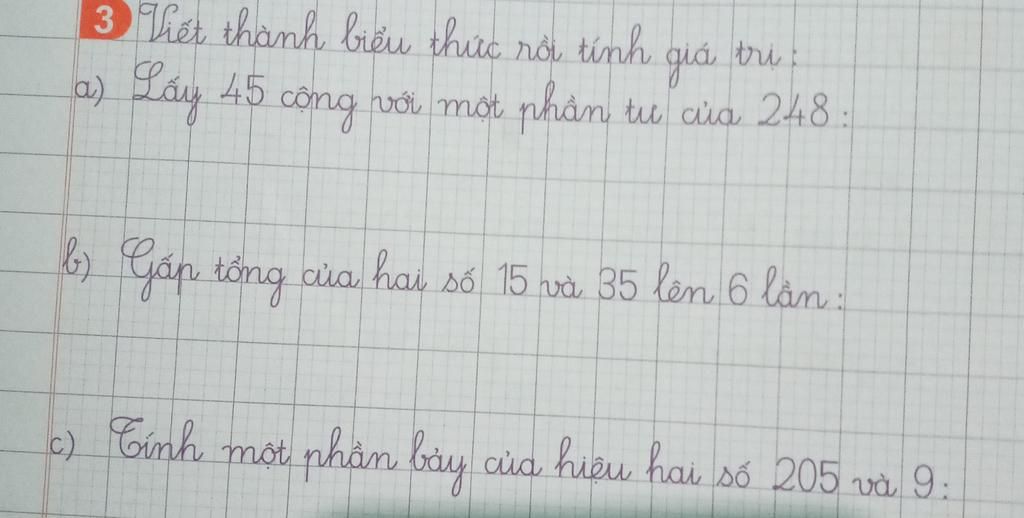 3 Viết thành biểu thức rồi tính giá trị:
a) Lấy 45 cộng với một phần tư của 248:
b) Gấp tổng của hai số 15 và 35 lên 6 lần:
c) Tính một phần bảy của hiệu hai số 205 và 9: